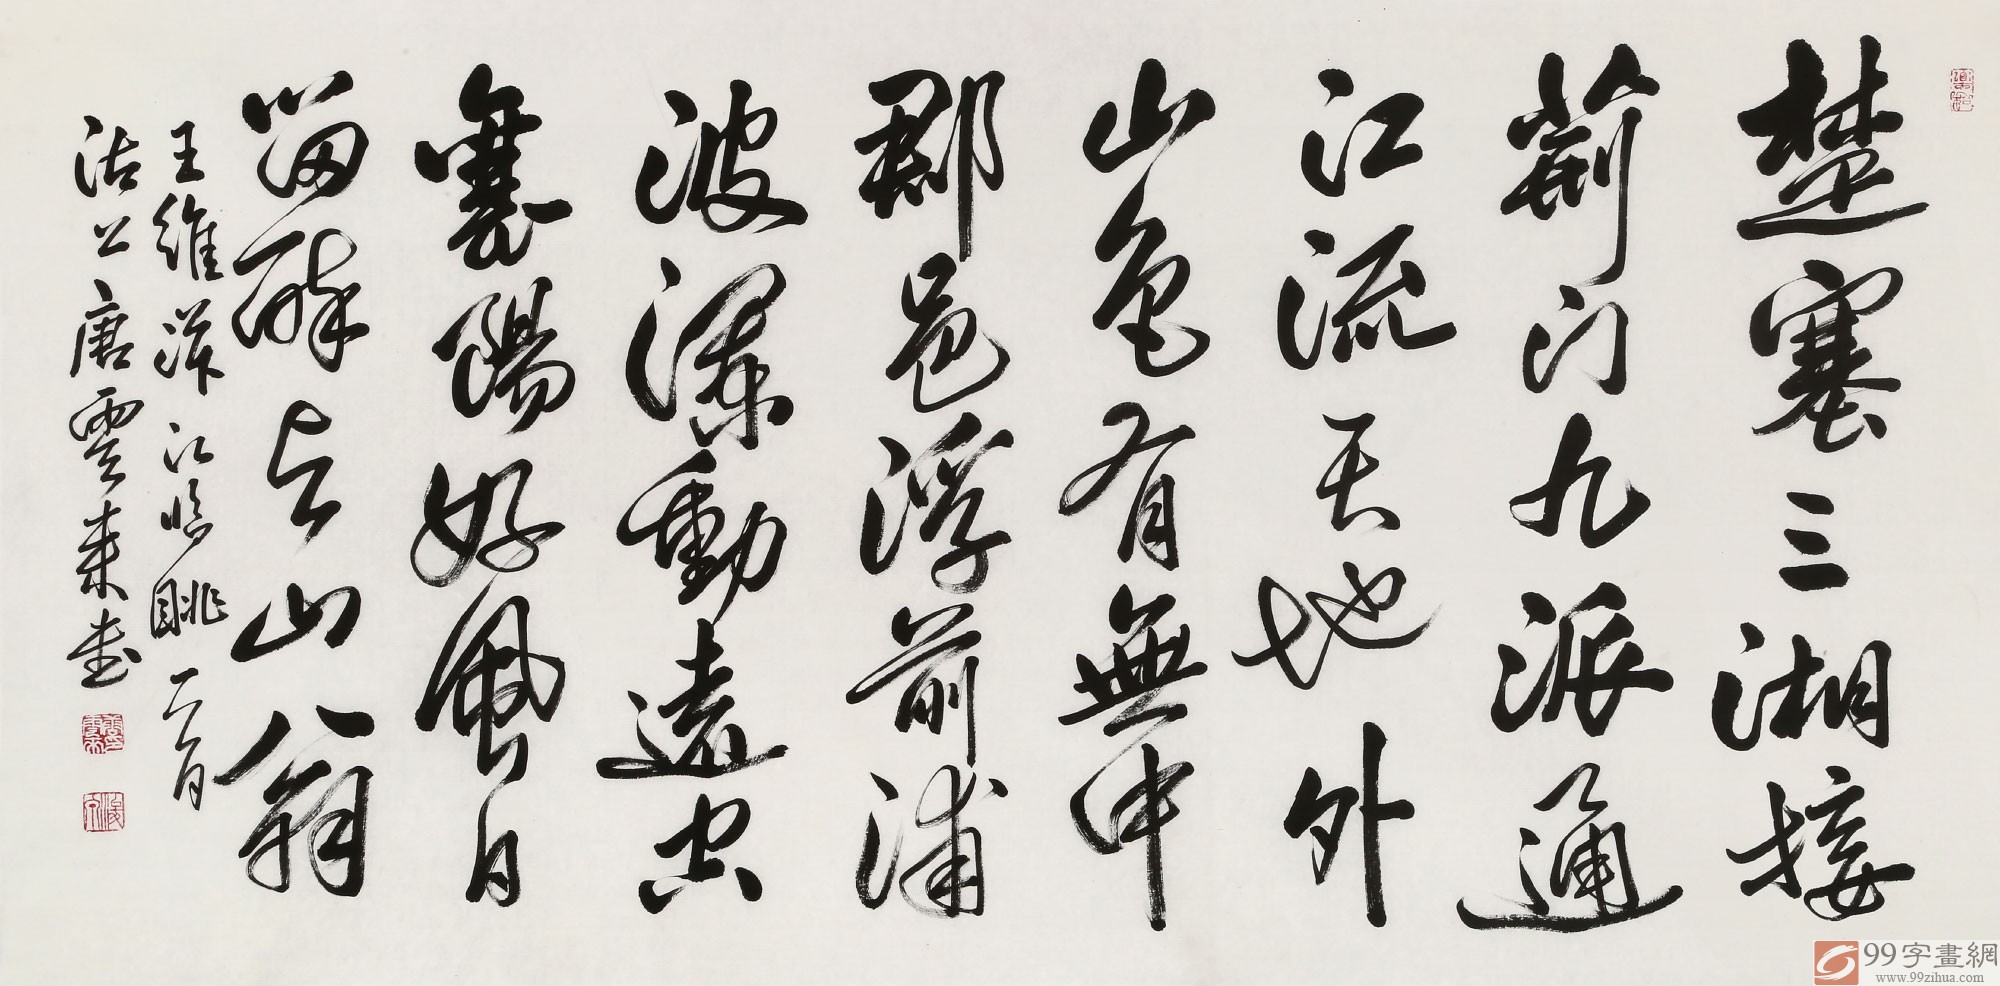 楚塞三湘接
荊门九派通
江流天地外
山色有無中
郡邑浮前浦
波瀾動遠空
襄陽好風日
留醉与山翁
王維漢江臨眺一首
沽上唐雲来書
99字畫網
www.99zihua.com